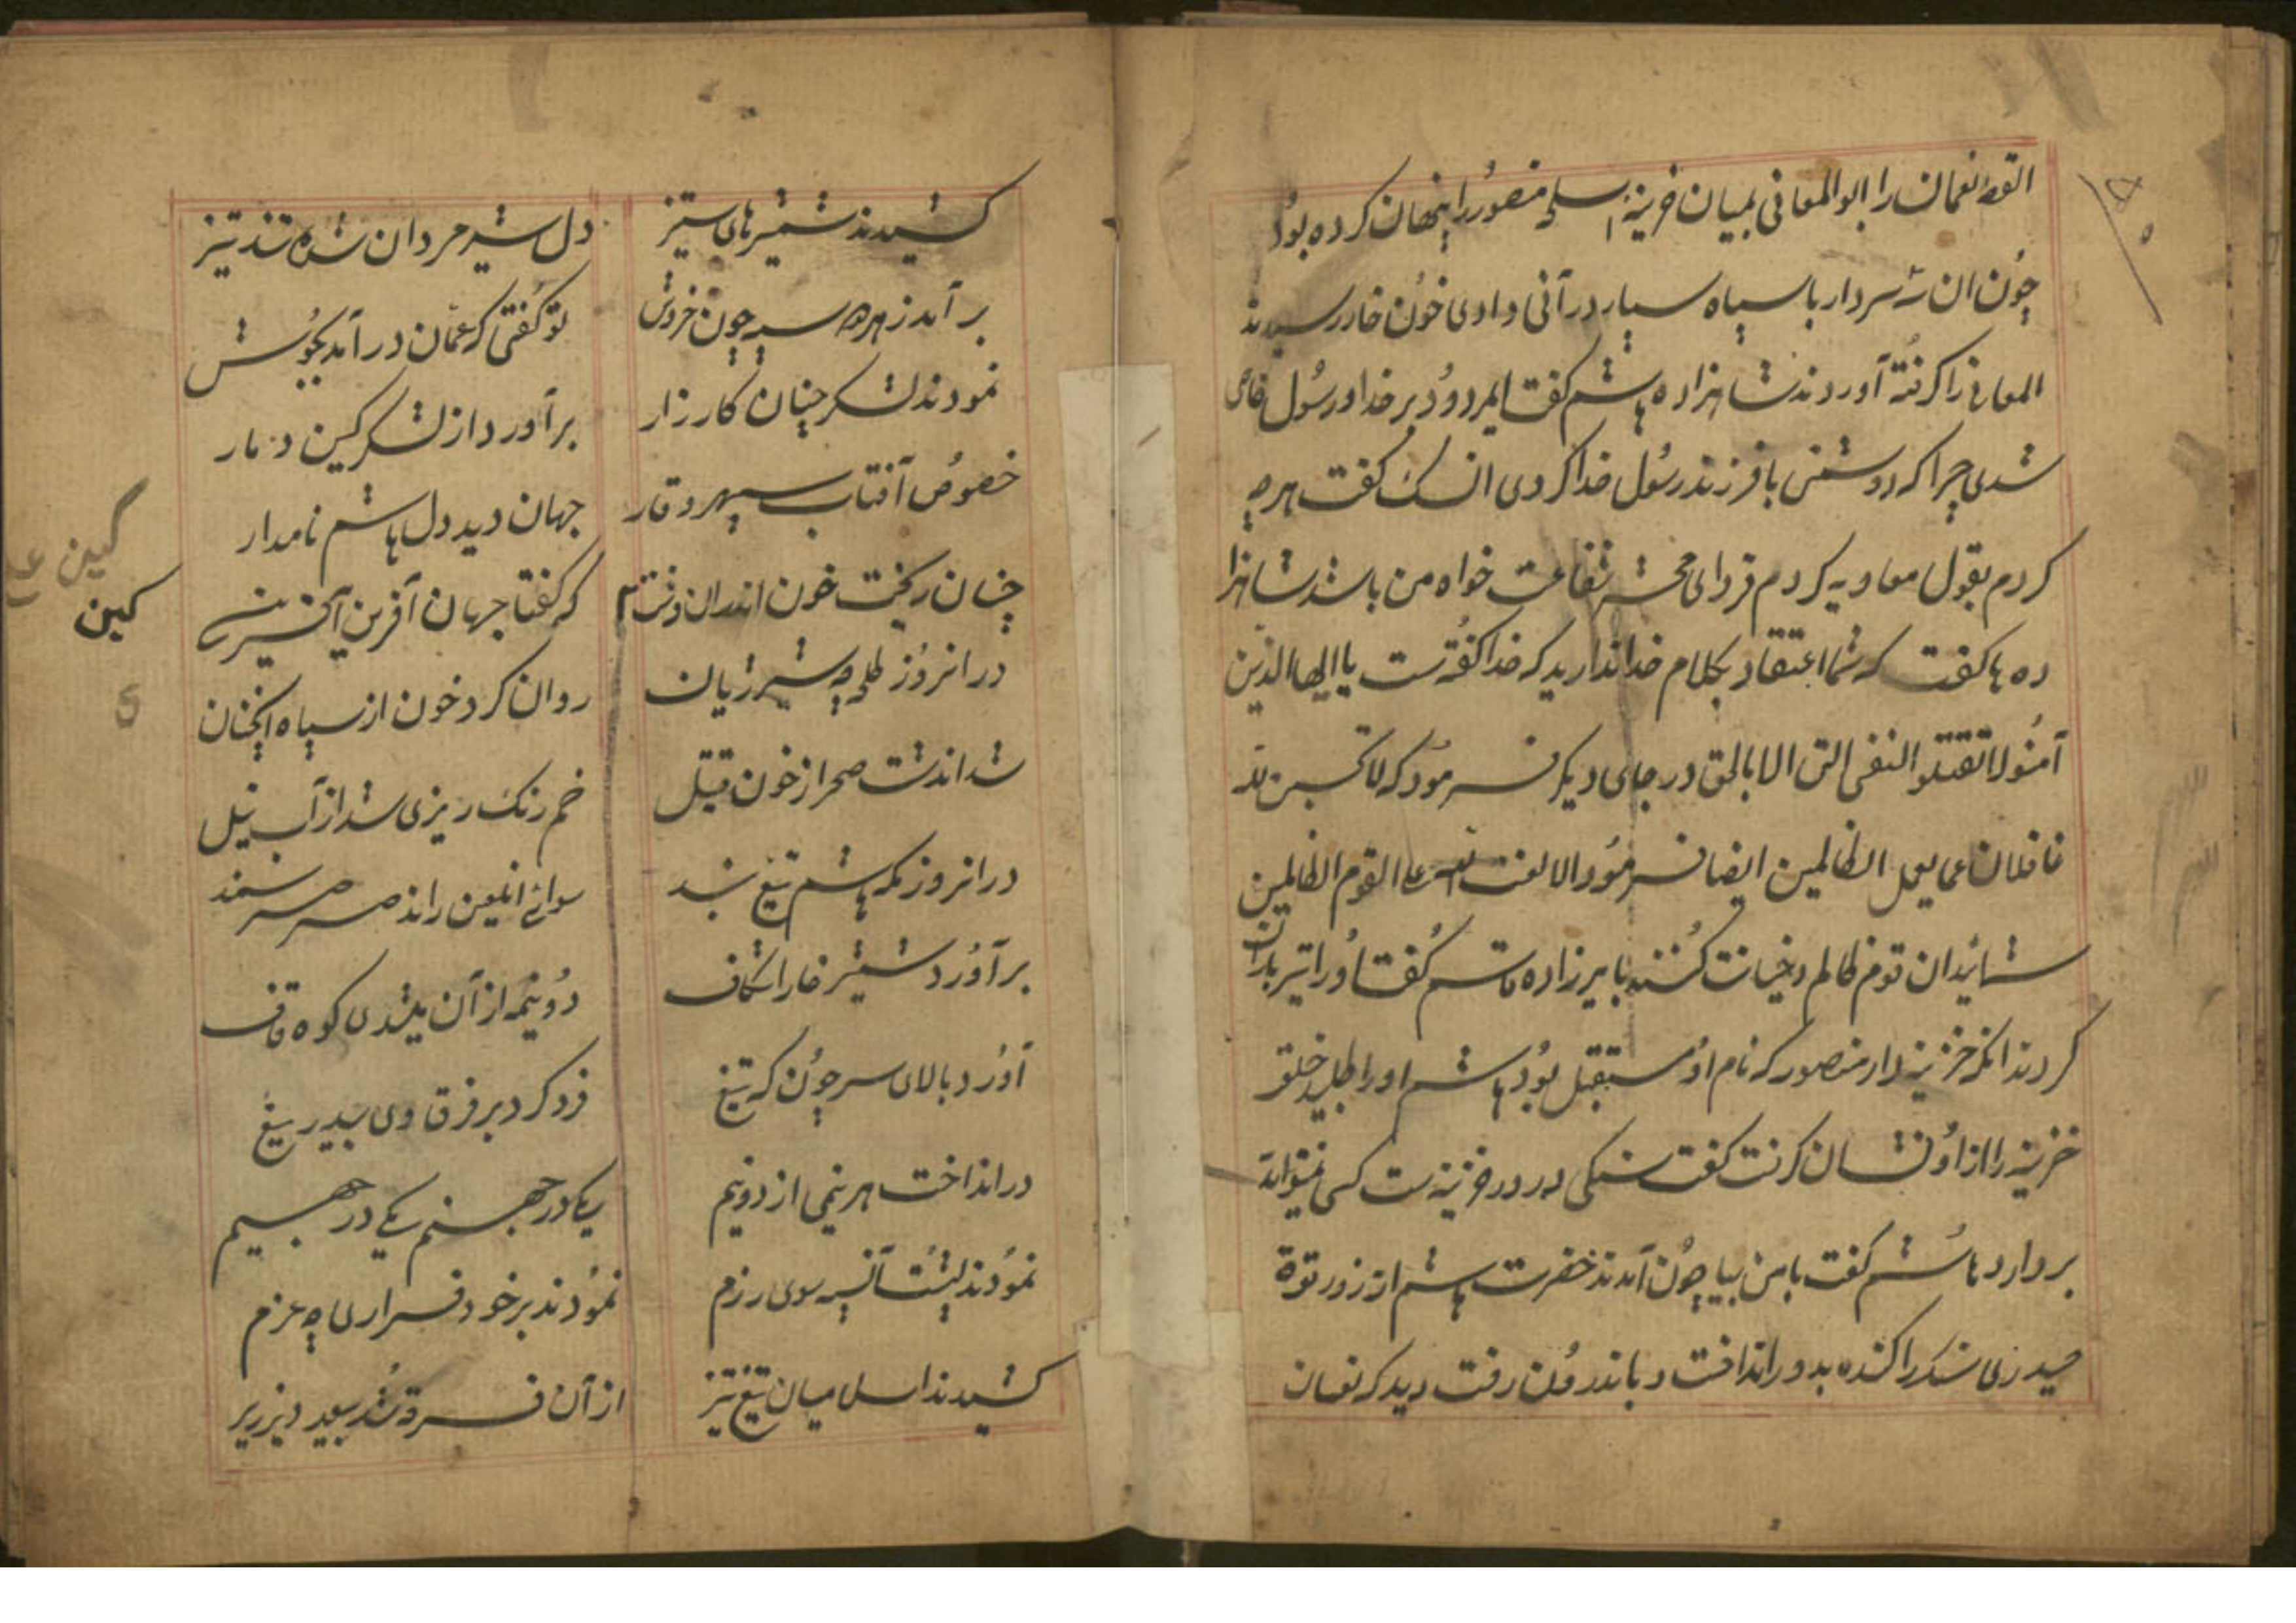 القصه نعمان را ابوالمعانی بمیان خزینهٔ اسلحه منصور را پنهان کرده بود
چون ان شه سردار با سپاه سیار در آنی وادی خون خار رسیدند
المعانی را گرفته آوردند شاهزاده هاشم کفت ایمردود بر خدا و رسول
شدی چرا که دوشمنی با فرزند رسول خدا کردی ان سک کفت هرچه
کردم بقول معاویه کردم فردای محشر شفاعت خواه من باشد شاهزا
ده ها کفت که شما اعتقاد بکلام خدا ندارید که خدا کفته ست یا ایها الذین
آمنو لا تقتلو النفس التی الا بالحق در جای دیکر فرمود که لا تحسبن الله
غافلان عما یعمل الظالمین ایضا فرمود الا لعنت الله علی القوم الظالمین
شمایدان قوم ظالم و خیانت کننده با پیرزاده هاشم کفتا او را تیرباران
کردند انکه خزینه دار منصور که نام او مستقبل بود هاشم او را طلبید خلق
خزینه را از او نشان کرفت کفت سنکی در در خزینه ست کسی نمیتواند
بردارد هاشم کفت با من بیا چون آمدند حضرت هاشم از زور قوة
حیدری سنک را کنده بدور انداخت و باندرون رفت دید که نعمان
کشیدند شمشیرهای ستیز دل شیر مردان شده تند تیز
بر آمد ز هر سو سپه چون خروش تو کفتی که عمان در آمد بجوش
نمودند لشکر چنان کارزار برآورد از لشکر کین دمار
خصوص آفتاب سپهر وقار جهان دید دل هاشم نامدار
چنان ریخت خون اندران دشت که کفتا جهان آفرین آفرین
کین
کین
در انروز طی چه شیر ژیان روان کرد خون از سپاه آنچنان
شد اندشت صحرا از خون قتیل خم رنک ریزی شد از آب نیل
در انروز که هاشم تیغ بند سوای انلعین راند صرصر سمند
برآورد شمشیر خارا شکاف دو نیمه از آن میشدی کوه قاف
آورد بالای سر چون که تیغ فرو کرد بر فرق وی بیدریغ
در انداخت هر نیمی از دو نیم یکی در جهنم یکی در جحیم
نمودند پشت آن سپه سوی رزم نمودند بر خود فراری چه عزم
کشیدند اسلامیان تیغ تیز از آن فرقه شد سعید وزیر